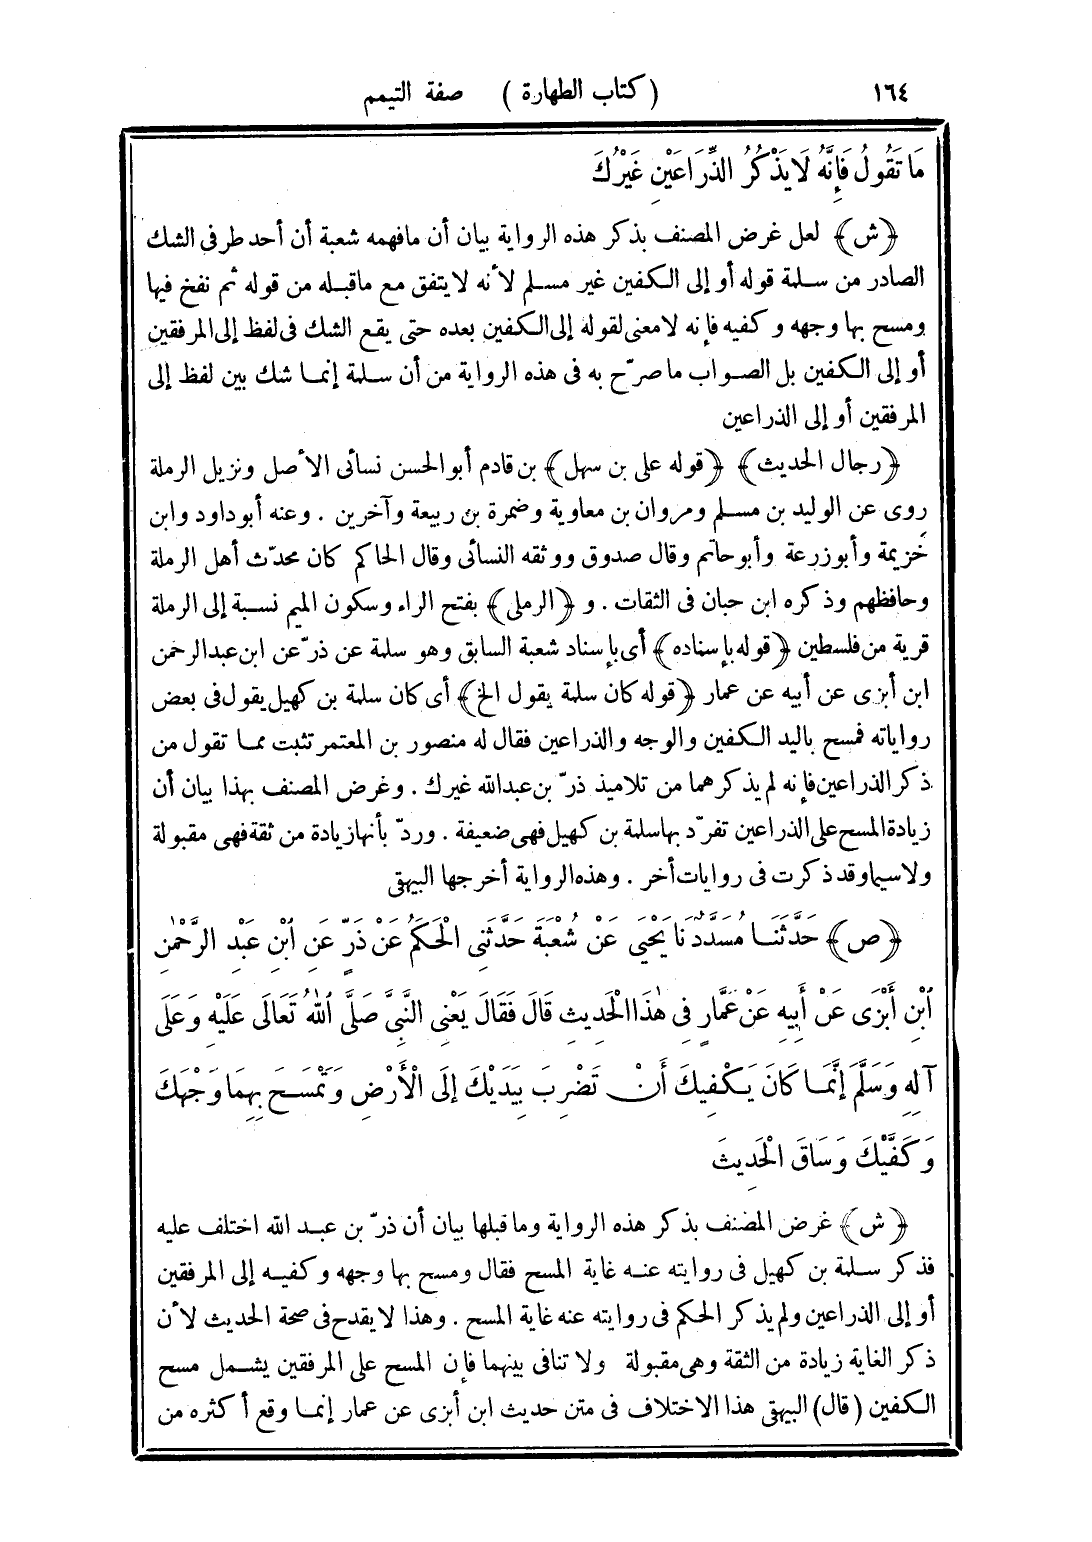 ١٦٤ ( كتاب الطهارة ) صفة التيمم
مَا تَقُولُ فَإِنَّهُ لَا يَذْكُرُ الذِّرَاعَيْنِ غَيْرُكَ
﴿ش﴾ لعل غرض المصنف بذكر هذه الرواية بيان أن مافهمه شعبة أن أحد طرفى الشك
الصادر من سلمة قوله أو إلى الكفين غير مسلم لأنه لايتفق مع ماقبله من قوله ثم نفخ فيها
ومسح بها وجهه وكفيه فإنه لامعنى لقوله إلى الكفين بعده حتى يقع الشك فى لفظ إلى المرفقين
أو إلى الكفين بل الصواب ماصرّح به فى هذه الرواية من أن سلمة إنما شك بين لفظ إلى
المرفقين أو إلى الذراعين
﴿رجال الحديث﴾ ﴿قوله على بن سهل﴾ بن قادم أبو الحسن نسائى الأصل ونزيل الرملة
روى عن الوليد بن مسلم ومروان بن معاوية وضمرة بن ربيعة وآخرين . وعنه أبوداود وابن
خُزيمة وأبوزرعة وأبوحاتم وقال صدوق ووثقه النسائى وقال الحاكم كان محدّث أهل الرملة
وحافظهم وذكره ابن حبان فى الثقات . و ﴿الرملى﴾ بفتح الراء وسكون الميم نسبة إلى الرملة
قرية من فلسطين ﴿قوله بإسناده﴾ أى بإسناد شعبة السابق وهو سلمة عن ذرّ عن ابن عبدالرحمن
ابن أبزى عن أبيه عن عمار ﴿قوله كان سلمة يقول الخ﴾ أى كان سلمة بن كهيل يقول فى بعض
رواياته فمسح باليد الكفين والوجه والذراعين فقال له منصور بن المعتمر تثبت مما تقول من
ذكر الذراعين فإنه لم يذكرهما من تلاميذ ذرّ بن عبدالله غيرك . وغرض المصنف بهذا بيان أن
زيادة المسح على الذراعين تفرّد بها سلمة بن كهيل فهى ضعيفة . وردّ بأنها زيادة من ثقة فهى مقبولة
ولاسيما وقد ذكرت فى روايات أخر . وهذه الرواية أخرجها البيهقى
﴿ص﴾ حَدَّثَنَا مُسَدَّدٌ نَا يَحْيَى عَنْ شُعْبَةَ حَدَّثَنِى الْحَكَمُ عَنْ ذَرٍّ عَنِ ابْنِ عَبْدِ الرَّحْمٰنِ
ابْنِ أَبْزَى عَنْ أَبِيهِ عَنْ عَمَّارٍ فِى هٰذَا الْحَدِيثِ قَالَ فَقَالَ يَعْنِى النَّبِىَّ صَلَّى اللهُ تَعَالَى عَلَيْهِ وَعَلَى
آلِهِ وَسَلَّمَ إِنَّمَا كَانَ يَكْفِيكَ أَنْ تَضْرِبَ بِيَدَيْكَ إِلَى الْأَرْضِ وَتَمْسَحَ بِهِمَا وَجْهَكَ
وَكَفَّيْكَ وَسَاقَ الْحَدِيثَ
﴿ش﴾ غرض المصنف بذكر هذه الرواية وما قبلها بيان أن ذرّ بن عبد الله اختلف عليه
فذكر سلمة بن كهيل فى روايته عنه غاية المسح فقال ومسح بها وجهه وكفيه إلى المرفقين
أو إلى الذراعين ولم يذكر الحكم فى روايته عنه غاية المسح . وهذا لا يقدح فى صحة الحديث لأن
ذكر الغاية زيادة من الثقة وهى مقبولة ولا تنافى بينهما فإن المسح على المرفقين يشمل مسح
الكفين (قال) البيهقى هذا الاختلاف فى متن حديث ابن أبزى عن عمار إنما وقع أكثره من